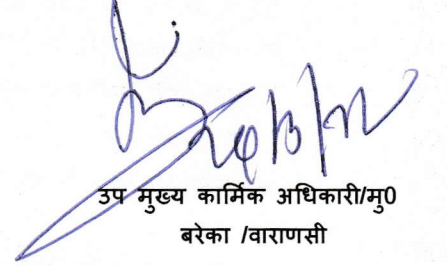 उप मुख्य कार्मिक अधिकारी/मु0
बरेका /वाराणसी